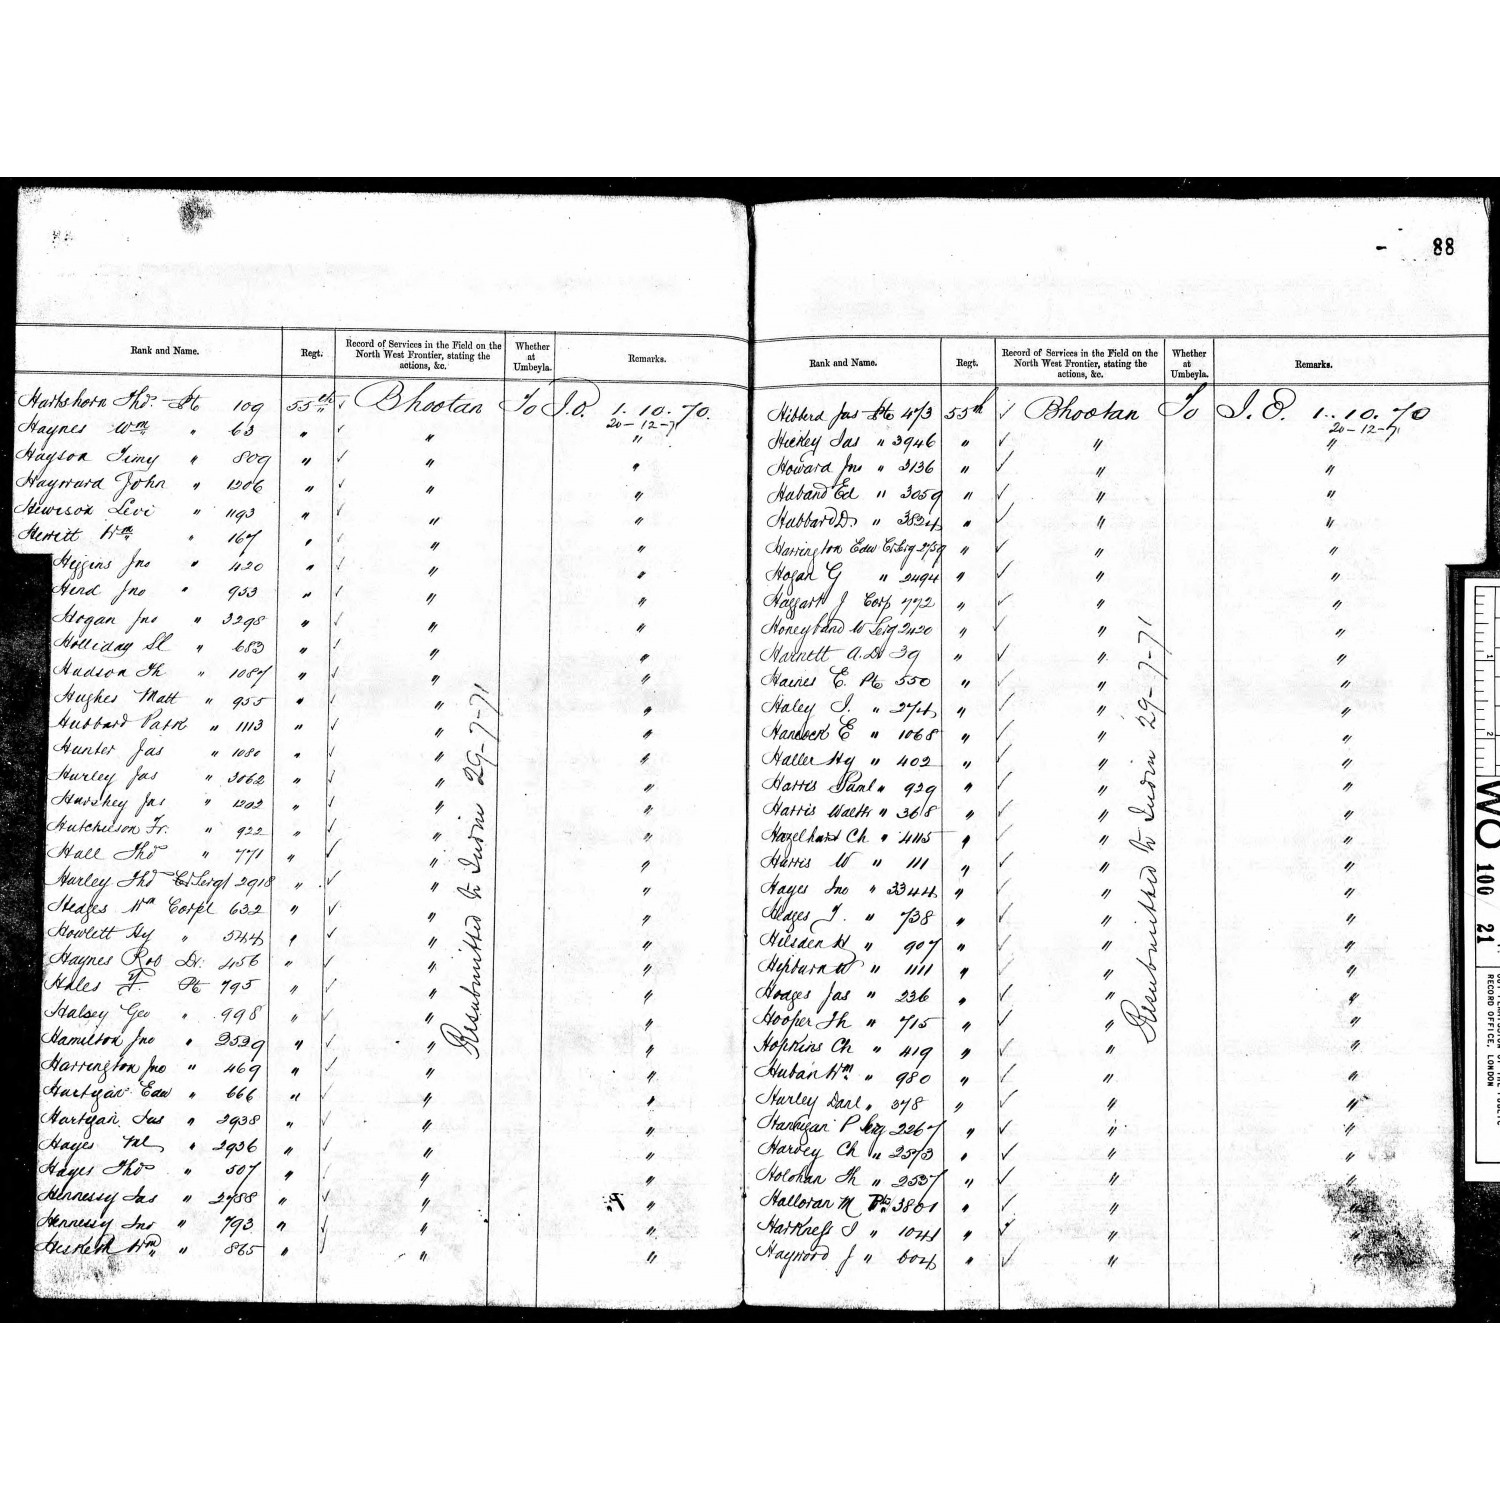 88
Rank and Name. Regt. Record of Services in the Field on the North West Frontier, stating the actions, &c. Whether at Umbeyla. Remarks.
Hartshorn Thos. Pte 109 55th ✓ Bhootan To I.O. 1. 10. 70.
20-12-71
Haynes Wm " 63 " ✓ " "
Hayson Timy " 809 " ✓ " "
Hayward John " 1206 " ✓ " "
Hewison Levi " 1193 " ✓ " "
Hewitt Wm " 167 " ✓ " "
Higgins Jno " 420 " ✓ " "
Hind Jno " 953 " ✓ " "
Hogan Jno " 3298 " ✓ " "
Holliday Sl " 683 " ✓ " "
Hudson Th " 1087 " ✓ " "
Hughes Matt " 955 " ✓ " "
Hubbard Patk " 1113 " ✓ " "
Hunter Jas " 1080 " ✓ " "
Hurley Jas " 3062 " ✓ " "
Hurshey Jas " 1202 " ✓ " "
Hutchison Fr. " 922 " ✓ " "
Hall Thos " 771 " ✓ " "
Hurley Thos Cr Sergt 2918 " ✓ " "
Hedges Wm Corpl 632 " ✓ " "
Howlett Hy " 544 " ✓ " "
Haynes Rob Dr. 456 " ✓ " "
Hales Pte 795 " ✓ " "
Halsey Geo " 998 " ✓ " "
Hamilton Jno " 2539 " ✓ " "
Harrington Jno " 469 " ✓ " "
Hartigan Edw " 666 " ✓ " "
Hartigan Jas " 2938 " ✓ " "
Hayes Ml " 2936 " ✓ " "
Hayes Thos " 507 " ✓ " "
Hennessy Jas " 2788 " ✓ " "
Hennessy Jno " 793 " ✓ " "
Hesketh Wm " 865 " ✓ " "
Resubmitted to India 29-7-71
Rank and Name. Regt. Record of Services in the Field on the North West Frontier, stating the actions, &c. Whether at Umbeyla. Remarks.
Hibberd Jas Pte 473 55th ✓ Bhootan To I.O. 1.. 10. 70
20-12-71
Hickey Jas " 3946 " ✓ " "
Howard Jno " 3136 " ✓ " "
Huband Ed " 3059 " ✓ " "
Hubbard D. " 3824 " ✓ " "
Harrington Edw Cr Serg 2759 " ✓ " "
Hogan G " 2494 " ✓ " "
Haggart J Corp 772 " ✓ " "
Honeyband W Serg 2420 " ✓ " "
Harnett A. Dr 39 " ✓ " "
Haines E. Pte 550 " ✓ " "
Haley J. " 274 " ✓ " "
Hancock E " 1068 " ✓ " "
Haller Hy " 402 " ✓ " "
Harris Saml " 929 " ✓ " "
Harris Walter " 368 " ✓ " "
Hazelhurst Ch " 4115 " " "
Harris W " 111 " ✓ " "
Hayes Jno " 3344 " ✓ " "
Hedges T. " 738 " ✓ " "
Hilsden H " 907 " ✓ " "
Hepburn W " 1111 " ✓ " "
Hodges Jas " 236 " ✓ " "
Hooper Th " 715 " ✓ " "
Hopkins Ch " 419 " ✓ " "
Huban Wm " 980 " ✓ " "
Hurley Danl " 378 " ✓ " "
Hannigan P Serg 2267 " ✓ " "
Harvey Ch " 2573 " ✓ " "
Holohan Th " 2537 " ✓ " "
Halloran M Pte 3801 " ✓ " "
Harkness J " 1044 " ✓ " "
Hayword J " 604 " ✓ "
Resubmitted to India 29-7-71
1
2
WO 100/ 21
RECORD OFFICE, LONDON